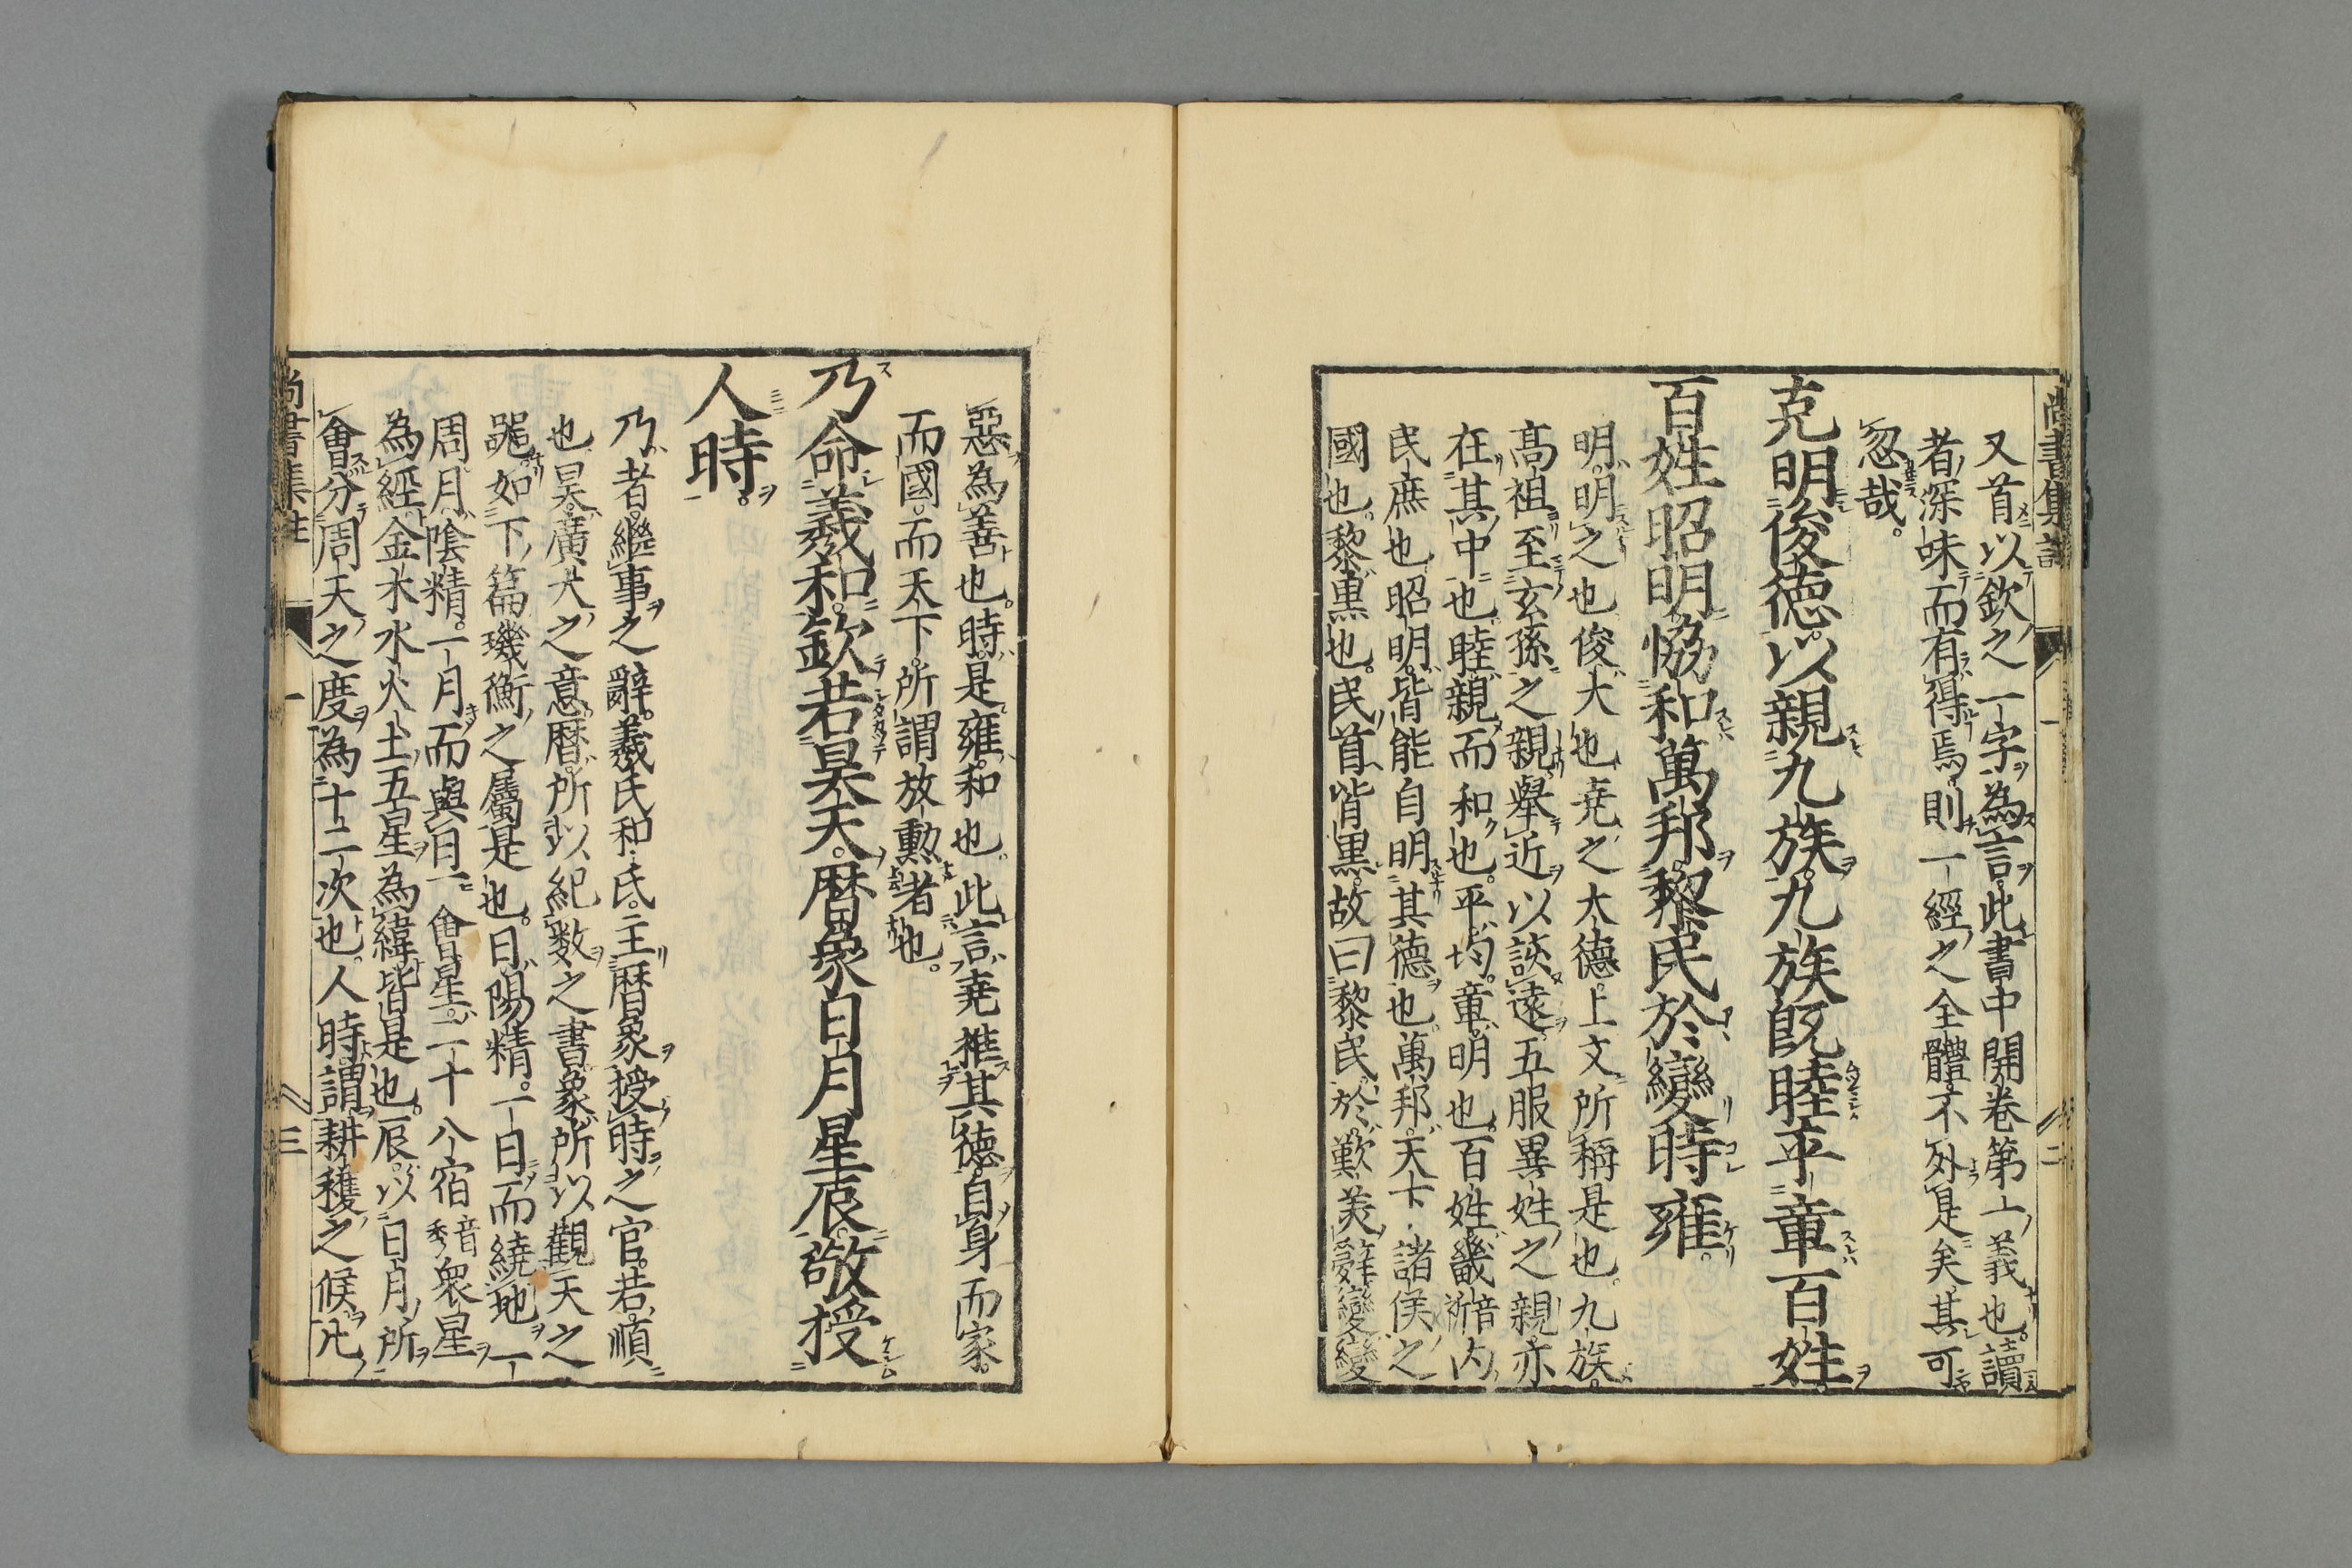 尚書集註 一 二
又首以欽之一字為言此書中開卷第一義也讀
者深味而有得焉則一經之全體不外是矣其可
忽哉。
克明俊德以親九族。九族既睦平章百姓。
百姓昭明協和萬邦。黎民於變時雍。
明。明之也俊大也堯之大德。上文所稱是也。九族。
高祖至玄孫之親舉近以該遠。五服異姓之親亦
在其中也。睦親而和也。平均。章明也。百姓。畿音祈內
民庶也昭明。皆能自明其德也萬邦。天下諸侯之
國也。黎黒也。民首皆黒。故曰黎民。於歎美辭變變
惡為善也。時是雍和也。此言堯推其德。自身而家。
而國。而天下。所謂放勲者也。
乃命羲和。欽若昊天。曆象日月星辰。敬授
人時。
乃者。繼事之辭。羲氏和氏。主曆象授時之官。若。順
也昊廣大之意。曆。所以紀数之書象。所以觀天之
噐如下篇璣衡之屬是也。日陽精。一日而繞地一
周月陰精。一月而與日一會星。二十八宿音秀衆星
為經金木水火土五星為緯皆是也。辰。以日月所
會分周天之度為十二次也。人時謂耕穫之候凡
尚書集註 一 三